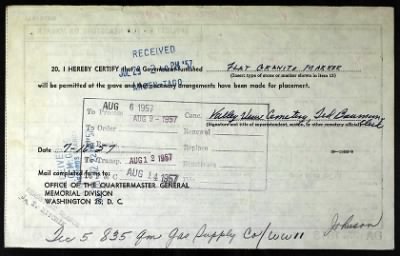 RECEIVED
JUL 23 2 PM '57
20. I HEREBY CERTIFY that a Government-furnished FLAT GRANITE MARKER
(Insert type of stone or marker shown in item 12)
will be permitted at the grave and the necessary arrangements have been made for placement.
AUG 6 1957
To Process AUG 9 - 1957 Canc. Valley View Cemetery, Ted
(Signature and title of superintendent, sexton, or other cemetery official)
To Order Renewal
Date 7-10-57 Replace
To Transp. AUG 12 1957 Reinstate
Mail completed forms to AUG 14 1957
OFFICE OF THE QUARTERMASTER GENERAL
MEMORIAL DIVISION
WASHINGTON 25, D. C.
Johnson
Tec 5 835 Qm Gas Supply Co/WWII